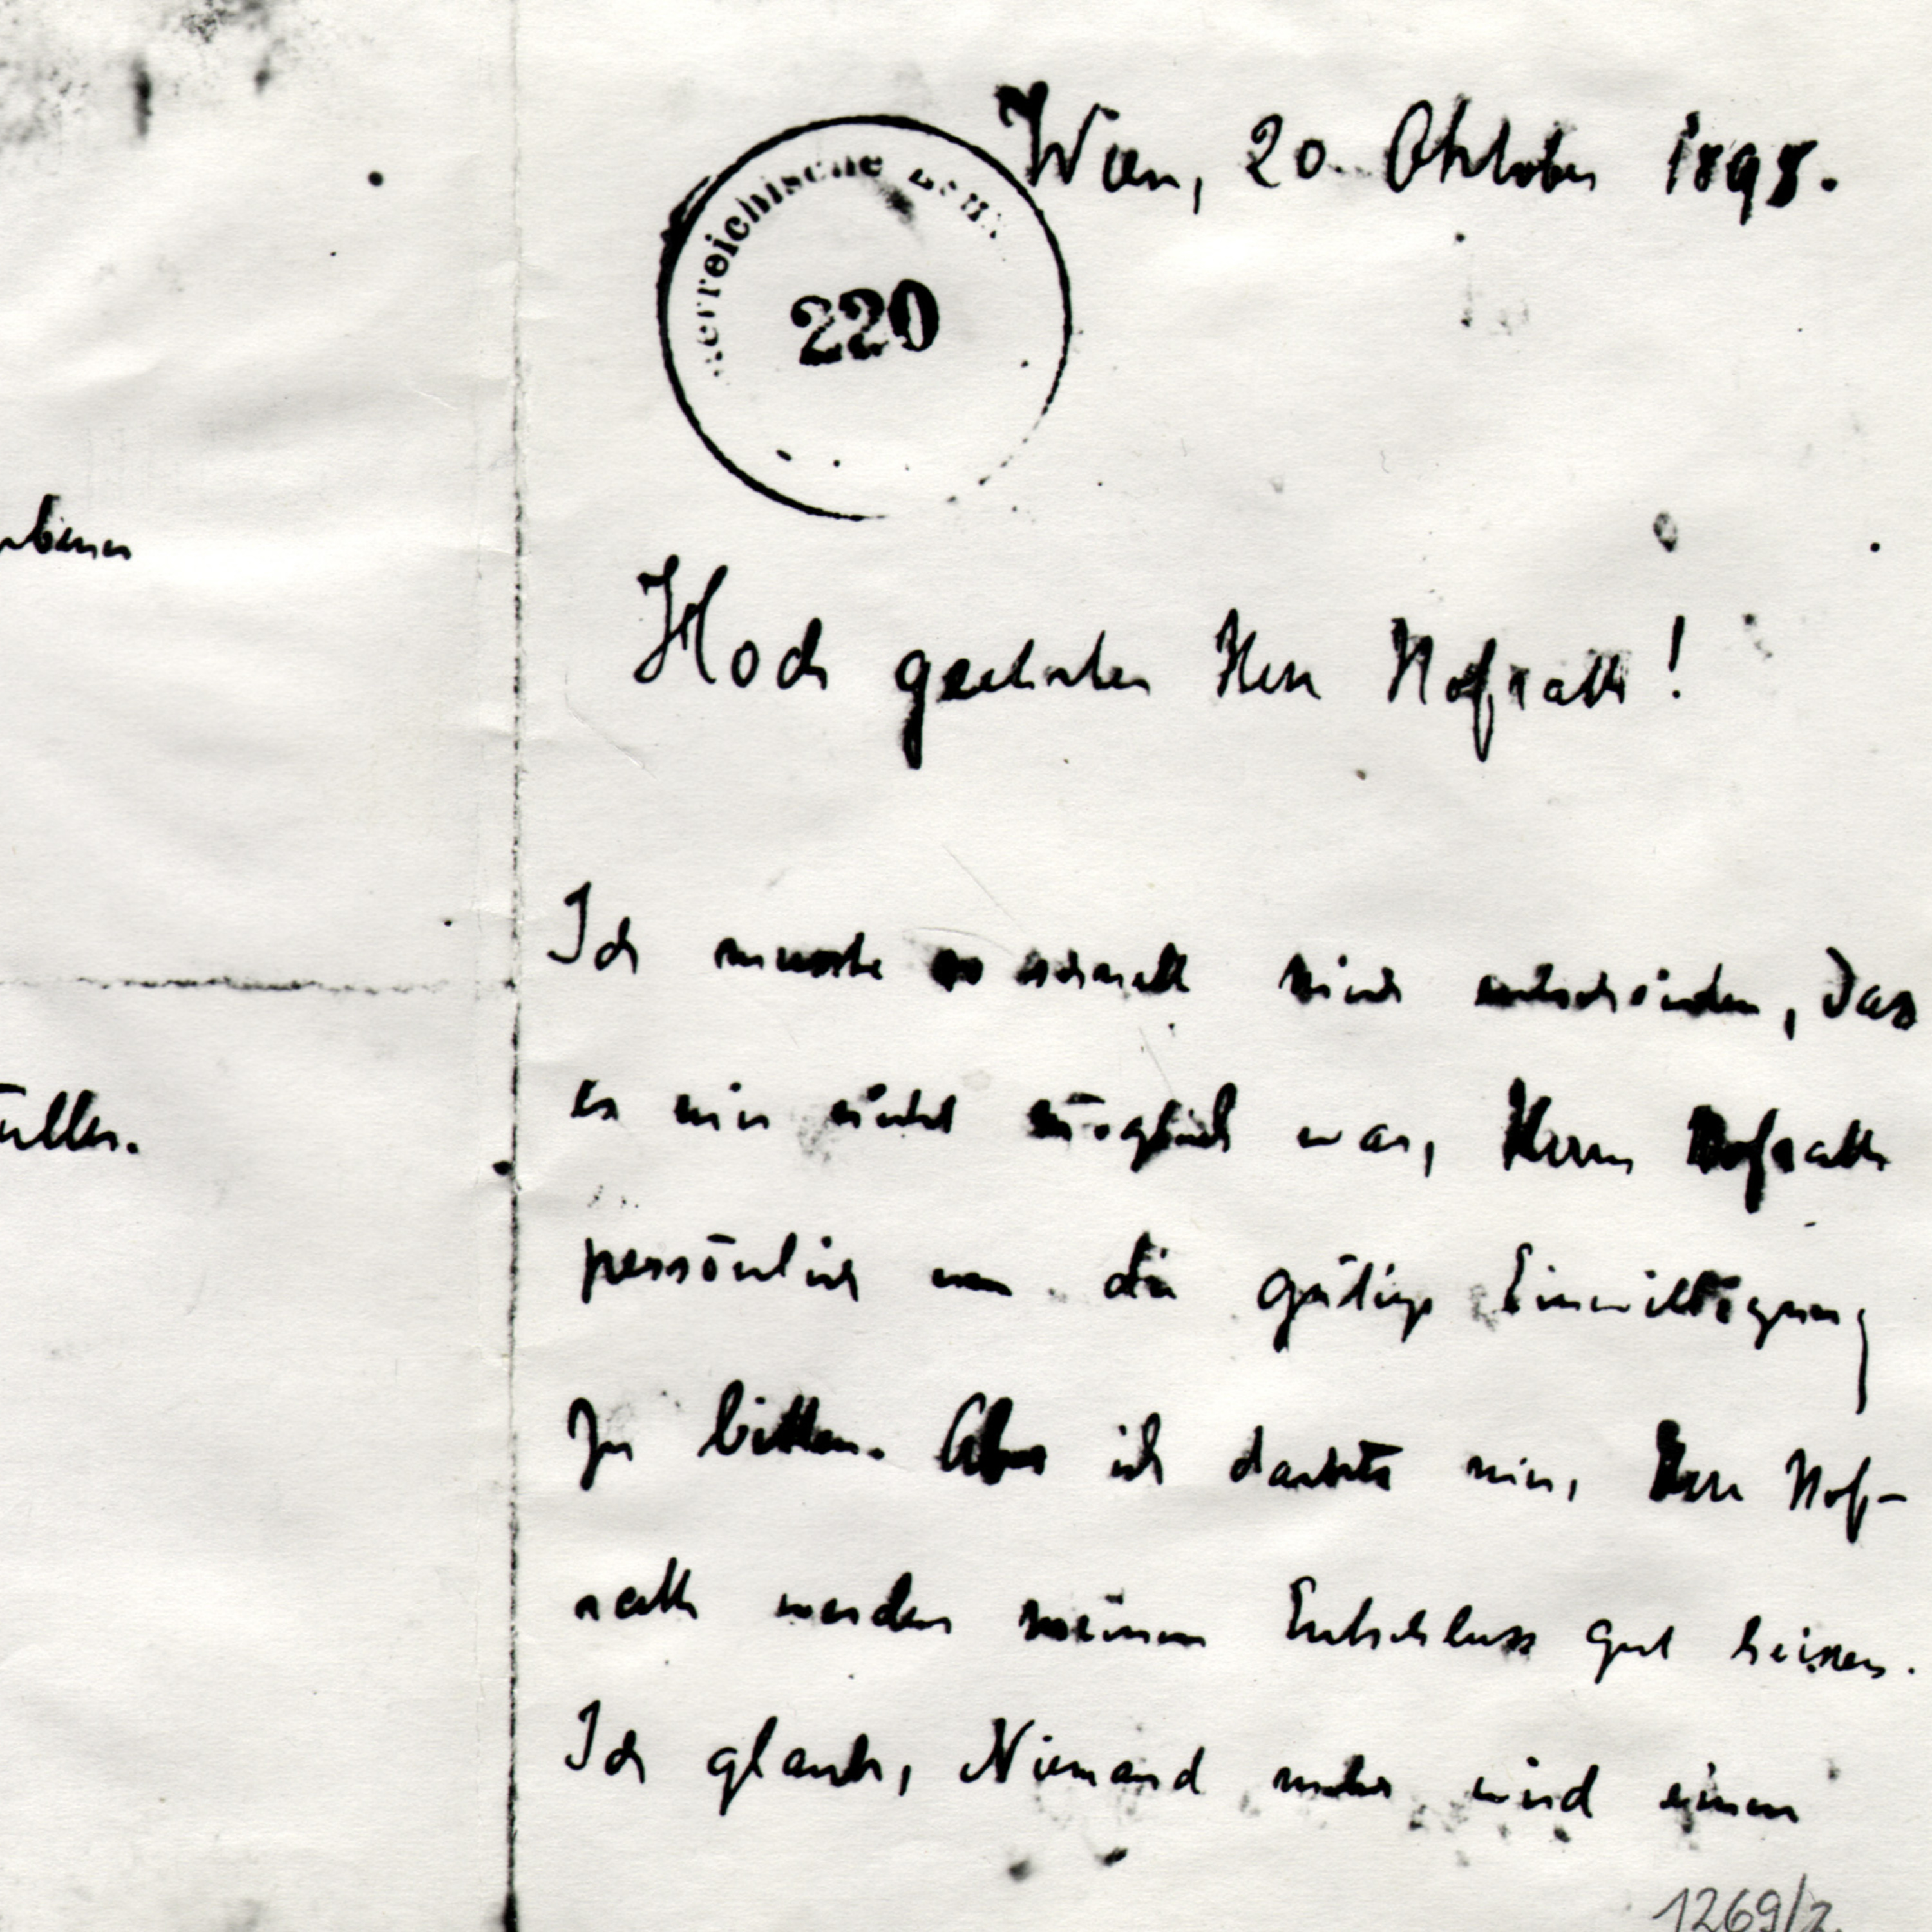 Wien, 20. Oktober 1898.
erreichische
220
Hoch geehrter Herr Hofrath!
Ich musste so schnell mich entscheiden, dass
es mir nicht möglich war, Herrn Hofrath
persönlich um die gütige Einwilligung
zu bitten. Aber ich dachte mir, Herr Hof-
rath werden meinen Entschluss gut heissen.
Ich glaube, Niemand mehr wird einen
1269/2